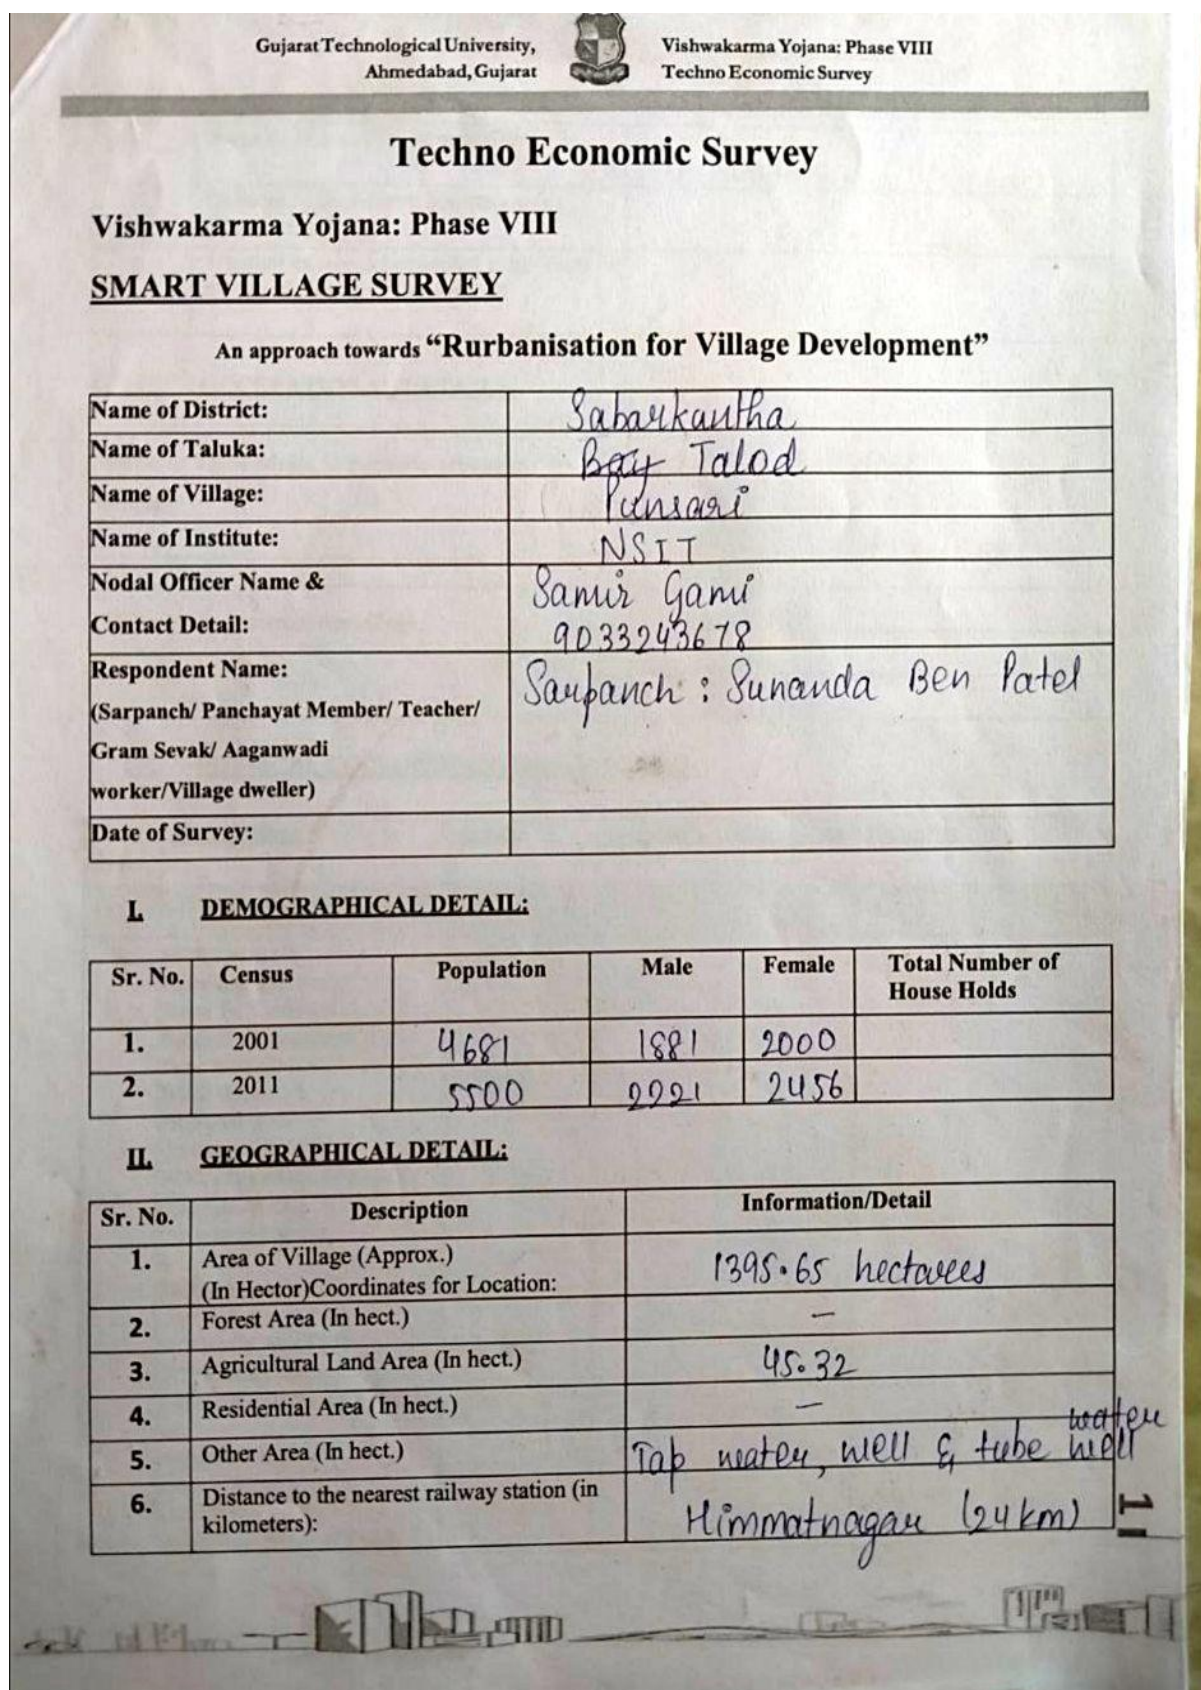 Gujarat Technological University,
Ahmedabad, Gujarat
Vishwakarma Yojana: Phase VIII
Techno Economic Survey
Techno Economic Survey
Vishwakarma Yojana: Phase VIII
SMART VILLAGE SURVEY
An approach towards “Rurbanisation for Village Development”
Name of District: Sabarkantha
Name of Taluka: Talod
Name of Village: Punsari
Name of Institute: NSIT
Nodal Officer Name & Samir Gami
Contact Detail: 9033243678
Respondent Name: Sarpanch : Sunanda Ben Patel
(Sarpanch/ Panchayat Member/ Teacher/
Gram Sevak/ Aaganwadi
worker/Village dweller)
Date of Survey:
I. DEMOGRAPHICAL DETAIL:
Sr. No. Census Population Male Female Total Number of
House Holds
1. 2001 4681 1881 2000
2. 2011 5500 2221 2456
II. GEOGRAPHICAL DETAIL:
Sr. No. Description Information/Detail
1. Area of Village (Approx.)
(In Hector)Coordinates for Location: 1395.65 hectarees
2. Forest Area (In hect.) –
3. Agricultural Land Area (In hect.) 45.32
4. Residential Area (In hect.) –
5. Other Area (In hect.) Tap water, well & tube well water
6. Distance to the nearest railway station (in
kilometers): Himmatnagar (24 km)
1